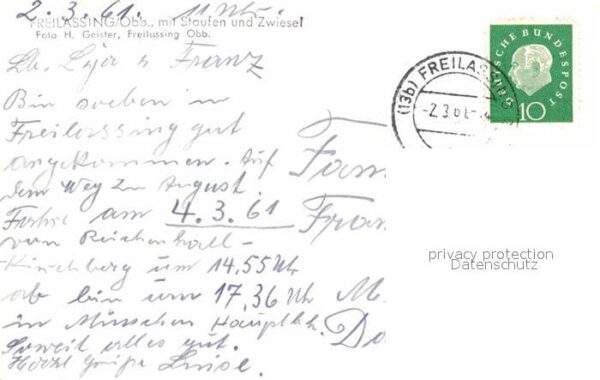 2.3.61. 11 Uhr.
FREILASSING/Obb., mit Staufen und Zwiesel
Foto H. Geister, Freilassing Obb.
Lb. Lya u Franz
Bin soeben in
Freilassing gut
angekommen. Auf
dem Weg zu August.
Fahre am 4.3.61
von Reichenhall-
Kirchberg um 14.55 Uhr
ab bin um 17,36 Uhr
in München Hauptbh.
Soweit alles gut.
Herzl Grüße Luise.
Fam
Fran
M
Do
(13b) FREILASSING
-2.3.61-
DEUTSCHE BUNDESPOST
10
privacy protection
Datenschutz